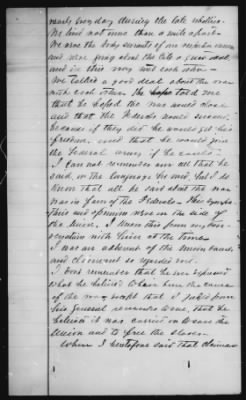 nearly every day during the late rebellion.
We lived not more than a mile apart.
We were the body servants of our respective owners
and were going about the Cibo a good deal,
and in this way met each other.
We talked a good deal about the war
with each other. He told me
that he hoped the war would close
and that the Federals would succeed,
because if they did he would get his
freedom, and that he would join
the Federal army if he could.
I can not remember now all that he
said, or the language he used, but I do
know that all he said about the war
was in favor of the Federals. His sympathies
and opinion were on the side of
the Union. I know this from my conversation
with him at the time.
I was an adherent of the Union cause,
and claimant so regarded me.
I dont remember that he ever expressed
what he believed to have been the cause
of the war except that I judged from
his general remarks to me, that he
believed it was carried on to save the
Union and to free the slaves.
When I heretofore said that claimant